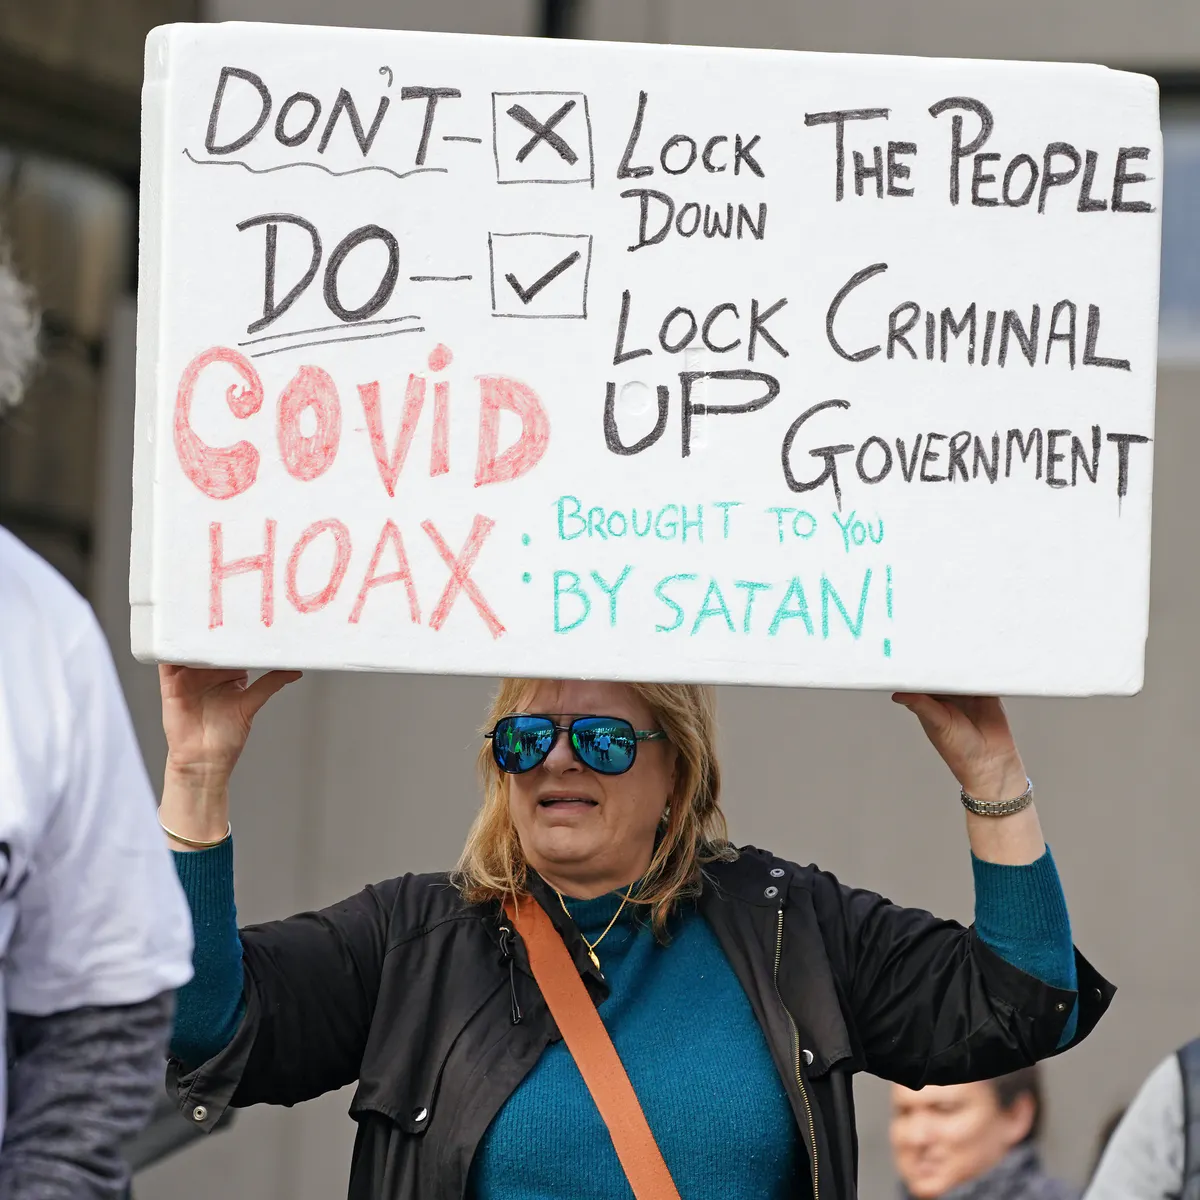 DON'T- X LOCK DOWN THE PEOPLE
DO- ✓ LOCK UP CRIMINAL GOVERNMENT
COVID
HOAX : BROUGHT TO YOU
BY SATAN!